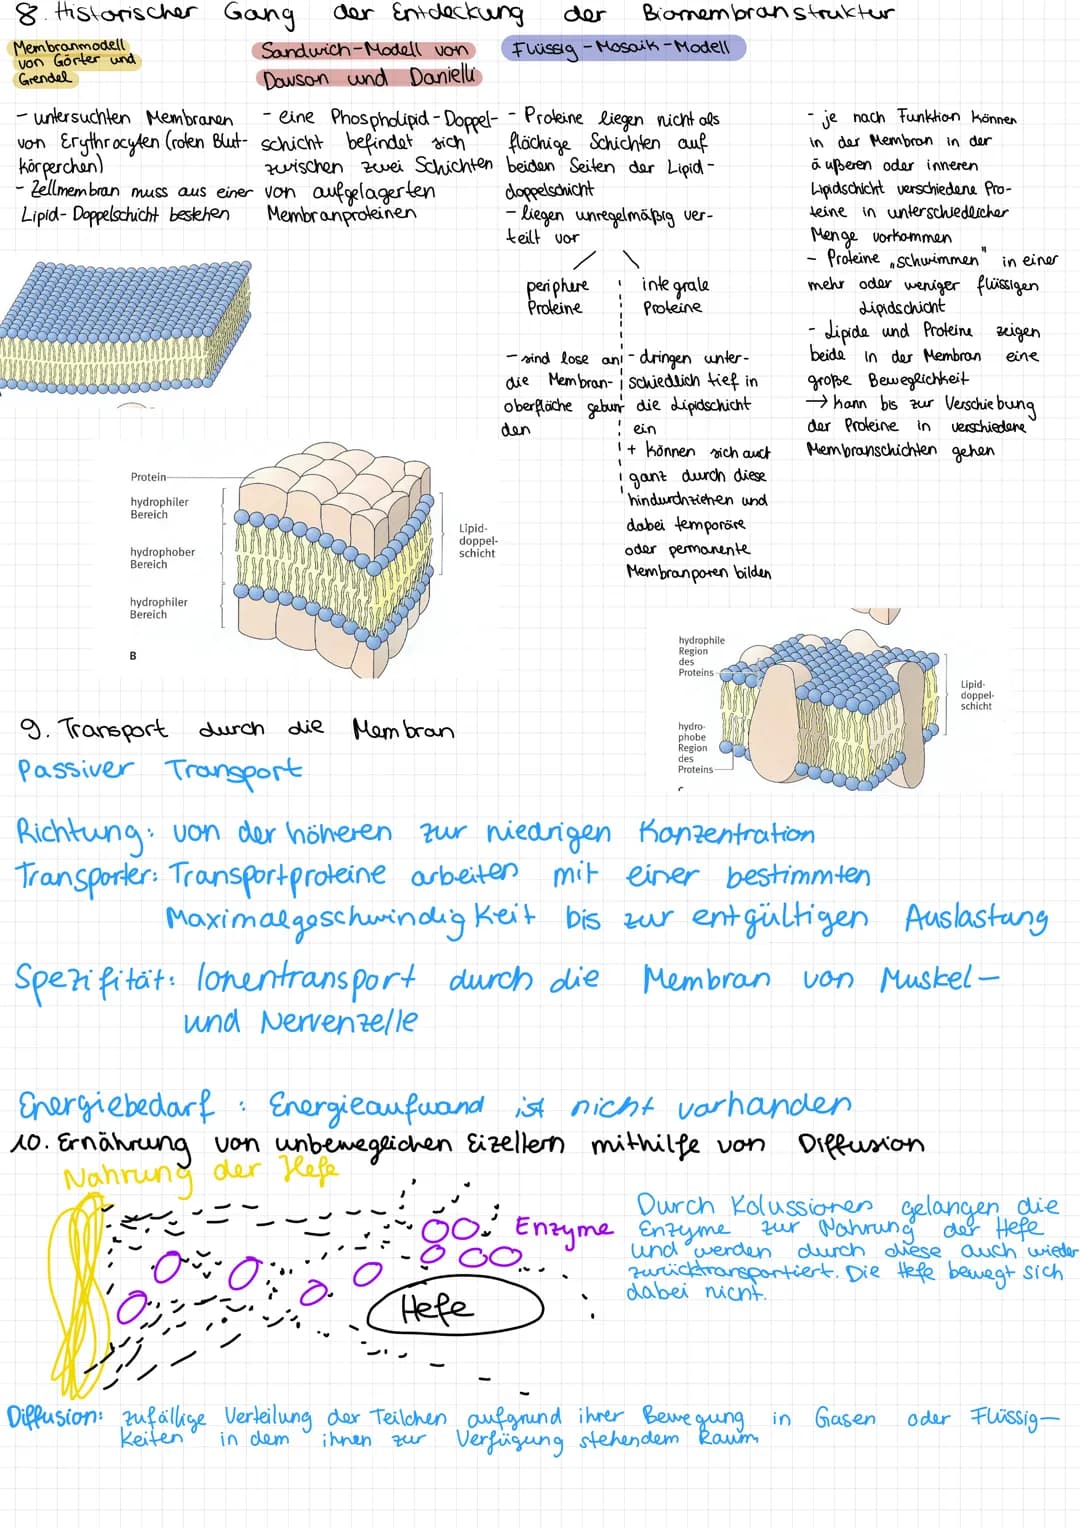 8. Historischer Gang der Entdeckung der Biomembranstruktur
Membranmodell
von Görter und
Grendel
- untersuchten Membranen
von Erythrocyten (roten Blut-
körperchen)
- Zellmembran muss aus einer
Lipid-Doppelschicht bestehen
Sandwich-Modell von
Dawson und Danielli
- eine Phospholipid-Doppel-
schicht befindet sich
zwischen zwei Schichten
von aufgelagerten
Membranproteinen
Flüssig-Mosaik-Modell
- Proteine liegen nicht als
flächige Schichten auf
beiden Seiten der Lipid-
doppelschicht
- liegen unregelmäßig ver-
teilt vor
periphere
Proteine
- sind lose an
die Membran-
oberfläche gebun
den
integrale
Proteine
- dringen unter-
schiedlich tief in
die Lipidschicht
ein
+ können sich auch
ganz durch diese
hindurchziehen und
dabei temporäre
oder permanente
Membranporen bilden
- je nach Funktion können
in der Membran in der
äußeren oder inneren
Lipidschicht verschiedene Pro-
teine in unterschiedlicher
Menge vorkommen
- Proteine „schwimmen" in einer
mehr oder weniger flüssigen
Lipidschicht
- Lipide und Proteine zeigen
beide in der Membran eine
große Beweglichkeit
→ kann bis zur Verschiebung
der Proteine in verschiedene
Membranschichten gehen
Protein
hydrophiler
Bereich
hydrophober
Bereich
hydrophiler
Bereich
B
Lipid-
doppel-
schicht
hydrophile
Region
des
Proteins
hydro-
phobe
Region
des
Proteins
Lipid-
doppel-
schicht
9. Transport durch die Membran
Passiver Transport
Richtung: von der höheren zur niedrigen Konzentration
Transporter: Transportproteine arbeiten mit einer bestimmten
Maximalgeschwindigkeit bis zur entgültigen Auslastung
Spezifität: Ionentransport durch die Membran von Muskel-
und Nervenzelle
Energiebedarf: Energieaufwand ist nicht vorhanden
10. Ernährung von unbeweglichen Eizellern mithilfe von Diffusion
Nahrung der Hefe
Enzyme
Hefe
Durch Kolussionen gelangen die
Enzyme zur Nahrung der Hefe
und werden durch diese auch wieder
zurücktransportiert. Die Hefe bewegt sich
dabei nicht.
Diffusion: zufällige Verteilung der Teilchen aufgrund ihrer Bewegung in Gasen oder Flüssig-
keiten in dem ihnen zur Verfügung stehendem Raum